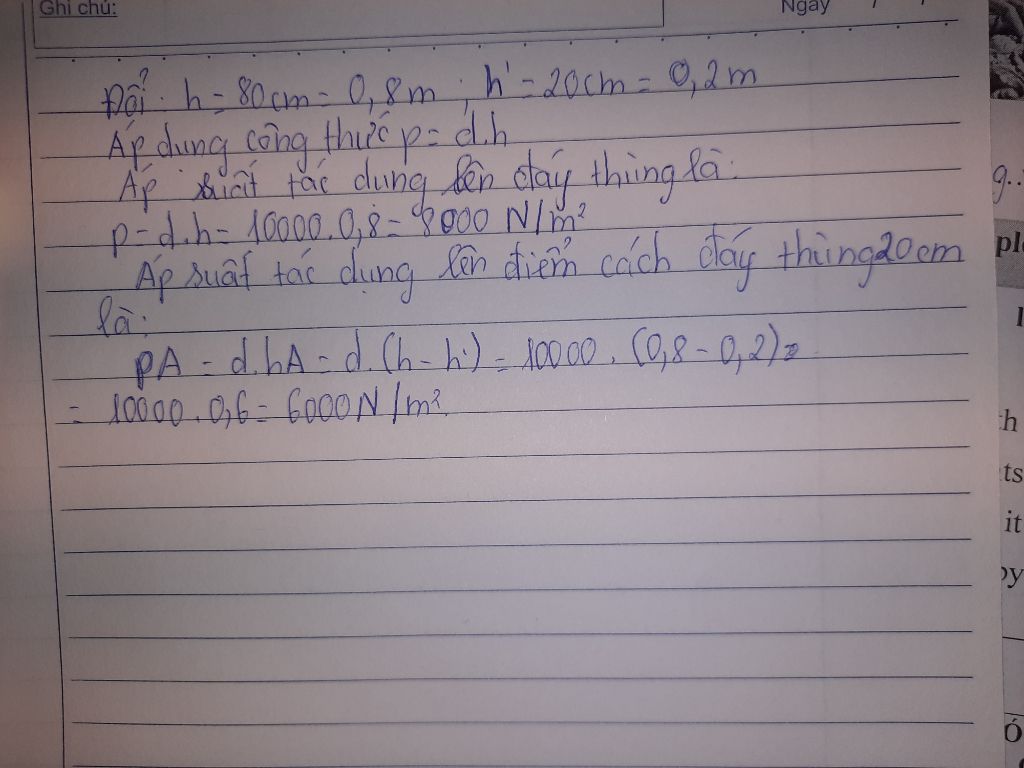 Ghi chú:
Ngày / /
Đổi: h = 80cm = 0,8m ; h' = 20cm = 0,2m
Áp dung công thức p = d.h
Áp suất tác dung lên đáy thùng là:
p = d.h = 10000.0,8 = 8000 N/m²
Áp suất tác dụng lên điểm cách đáy thùng 20cm
là:
pA = d.hA = d.(h-h') = 10000.(0,8-0,2) =
= 10000.0,6 = 6000N/m².
g..
ple
h
ts
it
by